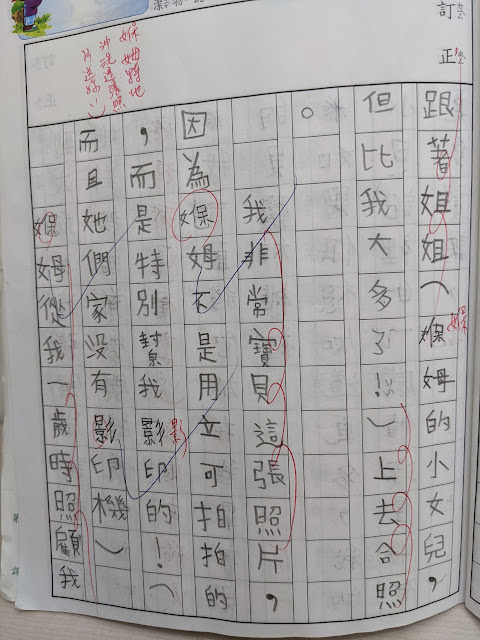 訂正
跟著姐姐(媬姆的小女兒,
媬
但比我大多了!!)上去合照
。
我非常寶貝這張照片,
因為媬姆不是用立可拍拍的
,而是特別幫我影印的!(
影
而且她們家沒有影印機)
媬姆從我一歲時照顧我
媬姆特地
沖洗這張照
片送妳:)